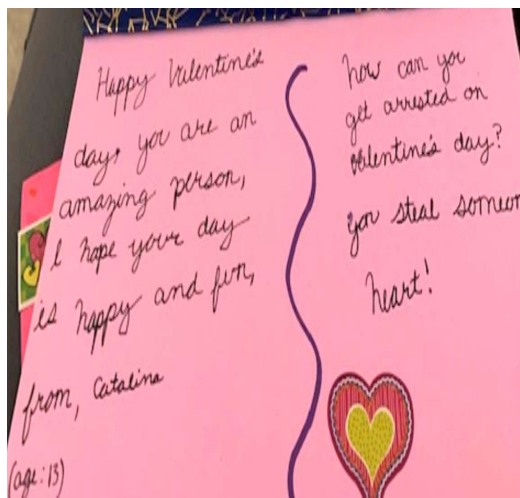 Happy Valentine's
day, you are an
amazing person,
I hope your day
is happy and fun,
from, Catalina
(age: 13)
how can you
get arrested on
valentine's day?
you steal
heart!